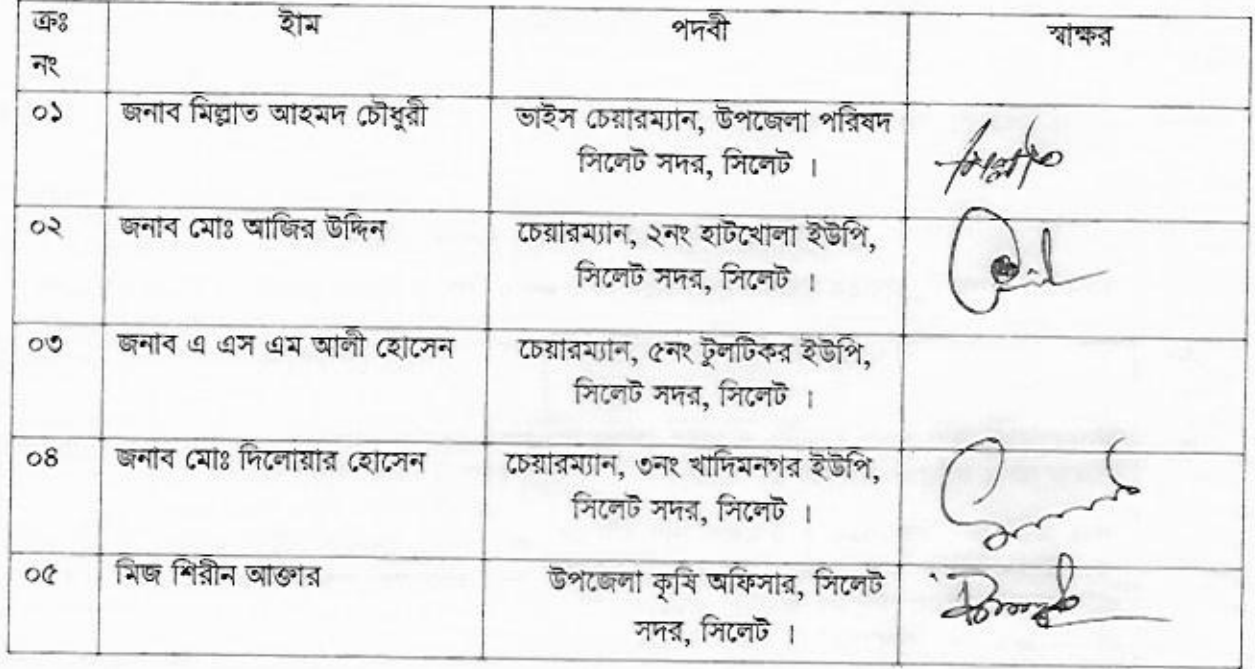 ক্রঃ নং ইাম পদবী স্বাক্ষর
০১ জনাব মিল্লাত আহমদ চৌধুরী ভাইস চেয়ারম্যান, উপজেলা পরিষদ
সিলেট সদর, সিলেট ।
০২ জনাব মোঃ আজির উদ্দিন চেয়ারম্যান, ২নং হাটখোলা ইউপি,
সিলেট সদর, সিলেট ।
০৩ জনাব এ এস এম আলী হোসেন চেয়ারম্যান, ৫নং টুলটিকর ইউপি,
সিলেট সদর, সিলেট ।
০৪ জনাব মোঃ দিলোয়ার হোসেন চেয়ারম্যান, ৩নং খাদিমনগর ইউপি,
সিলেট সদর, সিলেট ।
০৫ মিজ শিরীন আক্তার উপজেলা কৃষি অফিসার, সিলেট
সদর, সিলেট ।